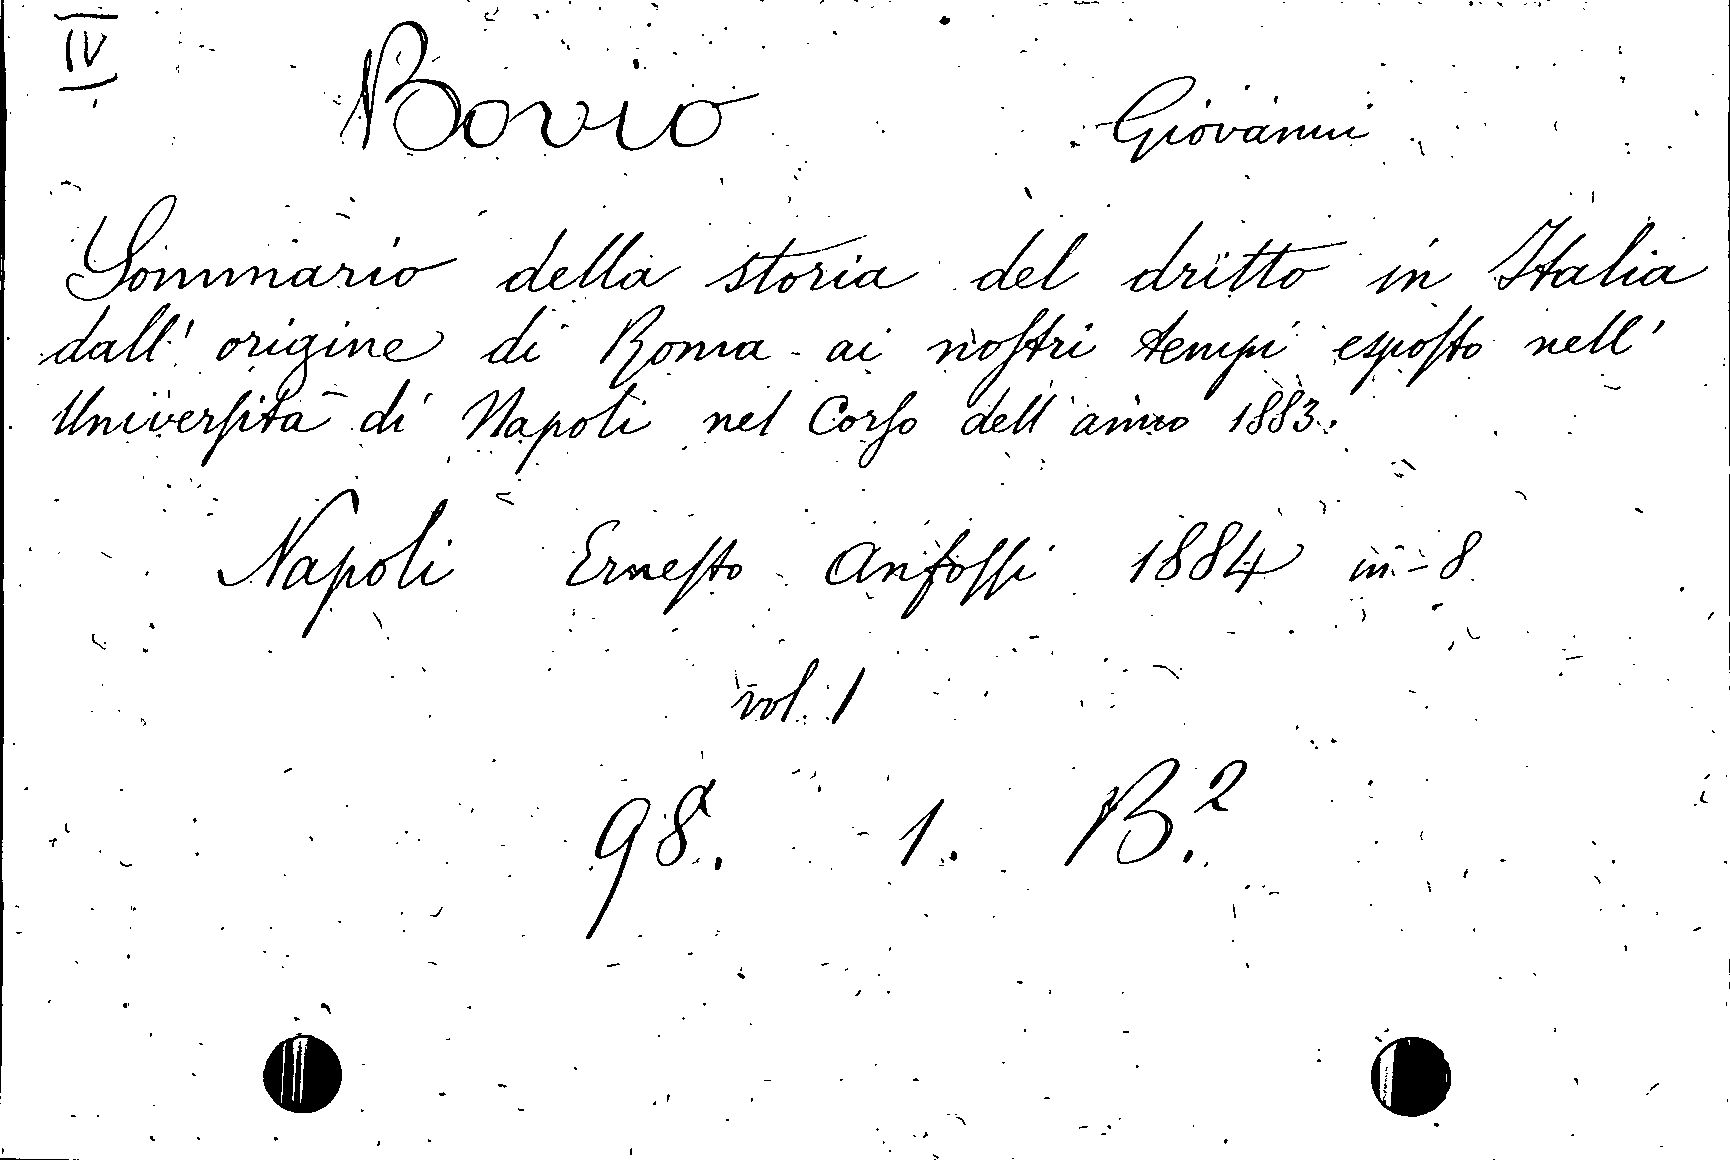 IV
Bovio Giovanni
Sommario della storia del dritto in Italia
dall' origine di Roma ai nostri tempi esposto nell'
Università di Napoli nel Corso dell'anno 1883.
Napoli Ernesto Anfossi 1884 in-8
vol. 1
98. 1. B.²